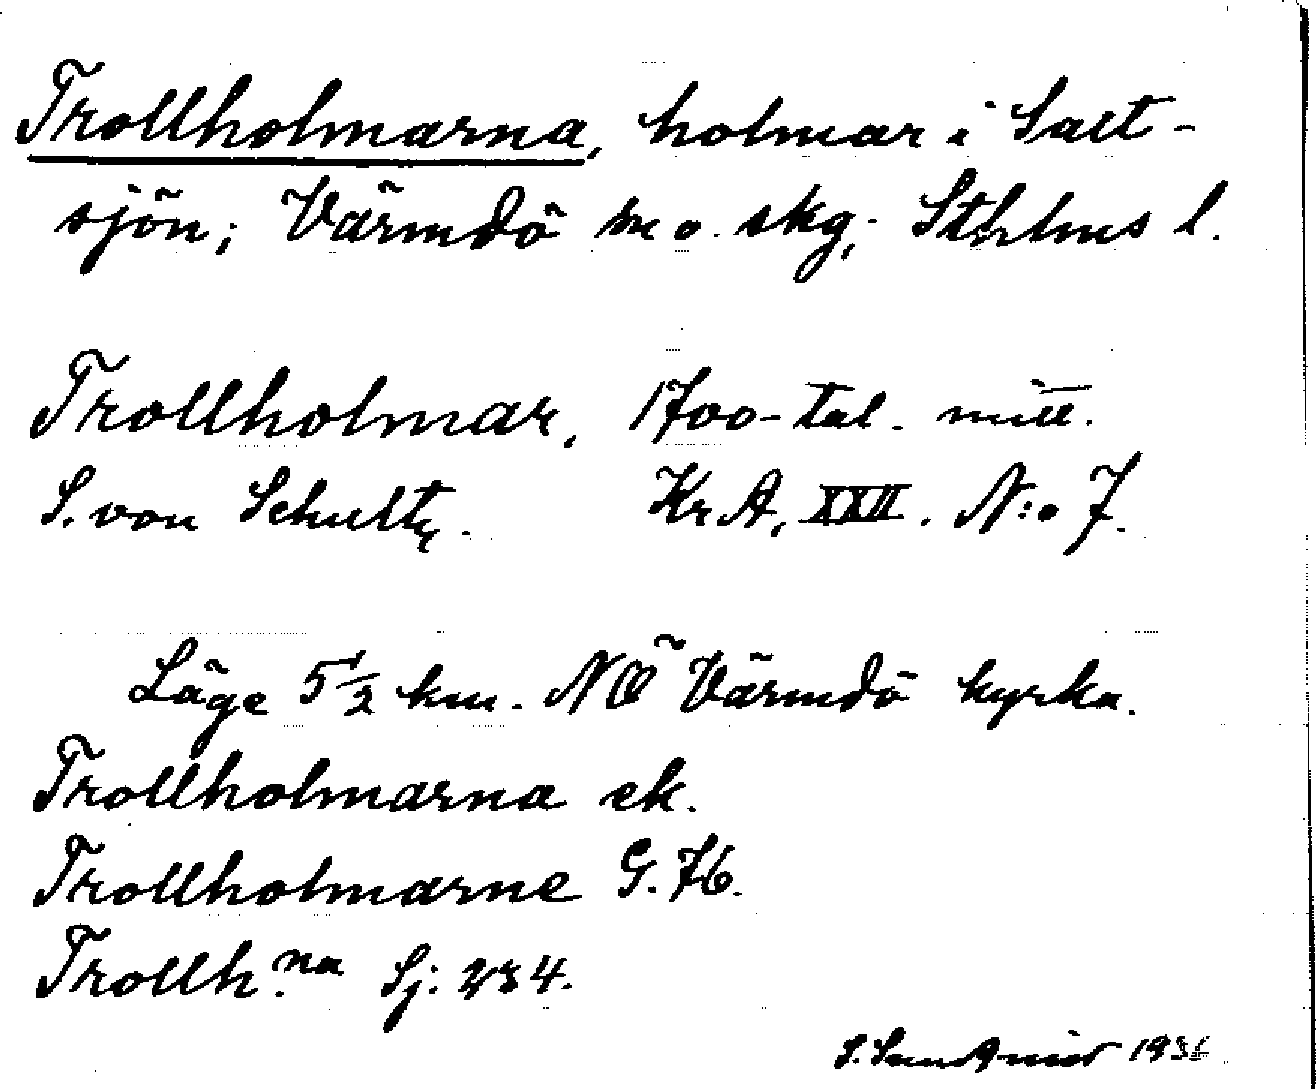 Trollholmarna, holmar i Salt-
sjön; Värmdö sn o. skg; Sthlms l.
Trollholmar, 1700-tal. mitt.
S. von Schultz. Kr A, XXII. N:o 7.
Läge 5 1/2 km. NÖ Värmdö kyrka.
Trollholmarna ek.
Trollholmarne G. 76.
Trollh.na Sj: 234.
1936